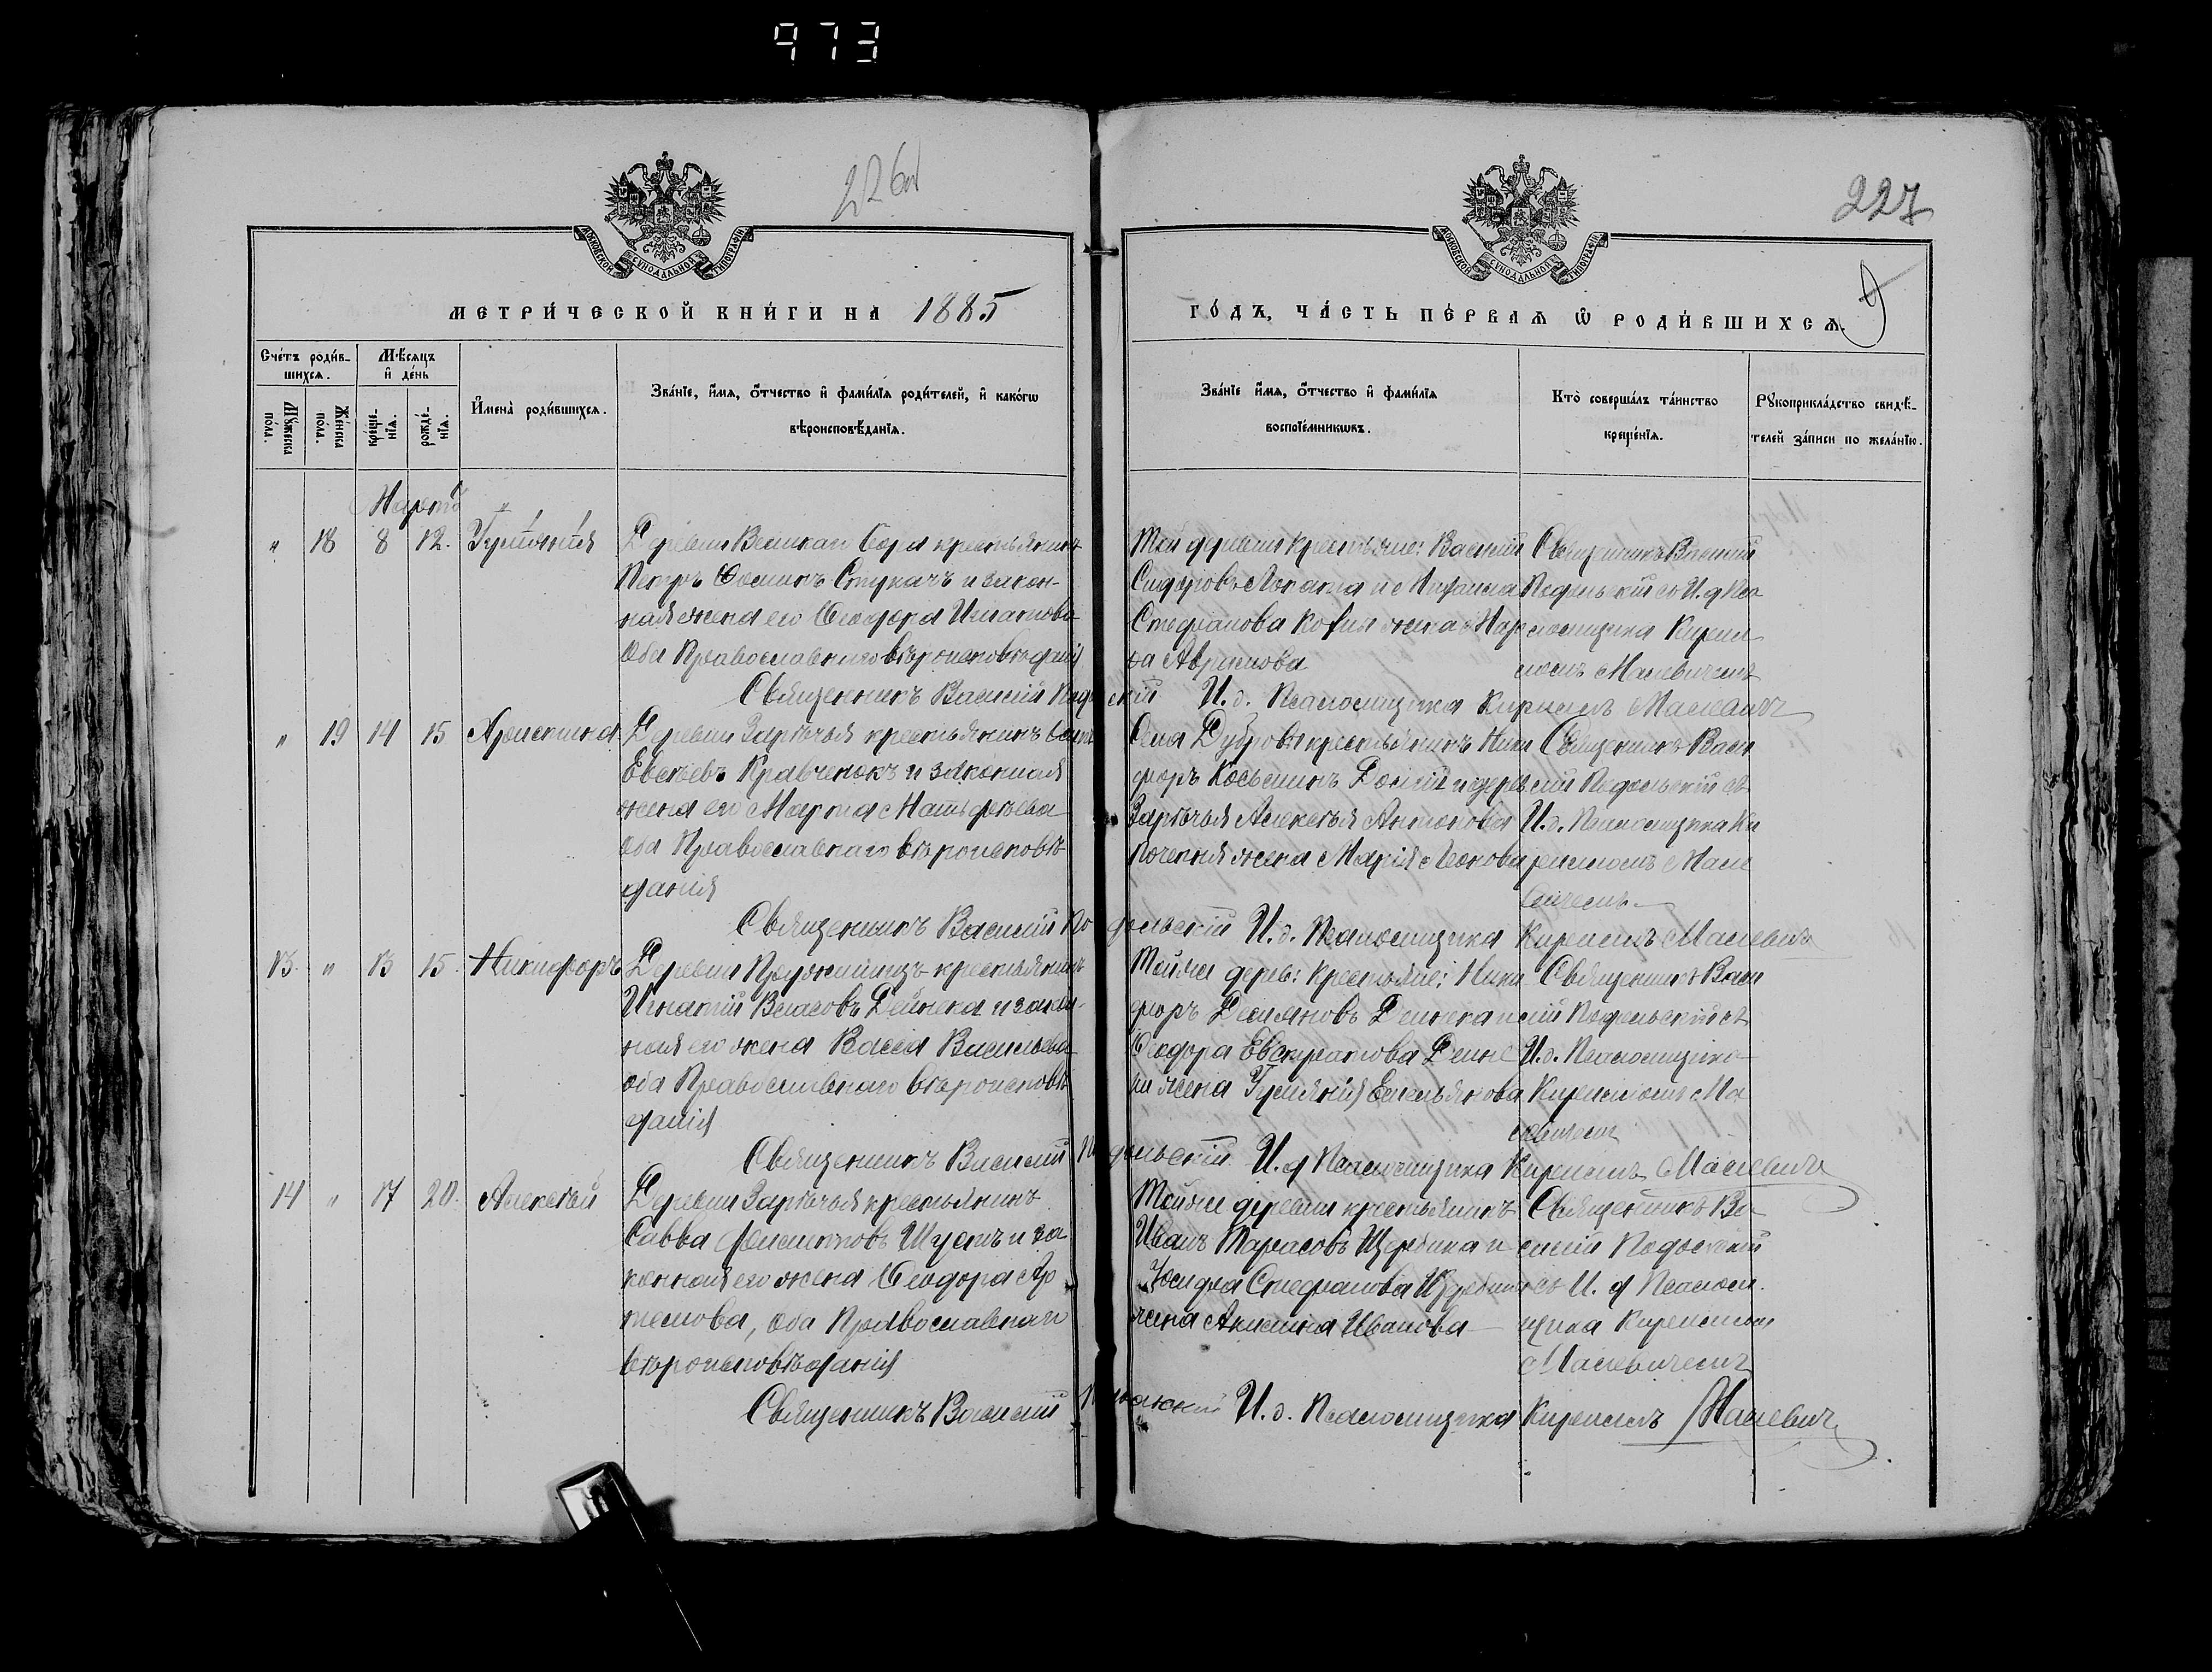 973
226об
227
9
МОСКОВСКОЙ СѴНОДАЛЬНОЙ ТИПОГРАФІИ
МОСКОВСКОЙ СѴНОДАЛЬНОЙ ТИПОГРАФІИ
МЕТРИ́ЧЕСКОЙ КНИ́ГИ НА 1885
ГО́ДЪ, ЧА́СТЬ ПЕ́РВАѦ Ѿ РОДИ́ВШИХСѦ.
Сче́тъ роди́в-
шихсѧ.
Мѣ́сѧцъ
и҆ де́нь
Мꙋ́жеска
пола.
Же́нска
пола.
креще́-
нїѧ.
рожде́-
нїѧ.
И҆мена̀ роди́вшихсѧ.
Зва́нїе, и҆́мѧ, о҆́тчество и҆ фами́лїѧ роди́телей, и҆ како́гѡ
вѣроисповѣ́данїѧ.
Зва́нїе и҆́мѧ, о҆́тчество и҆ фами́лїѧ
воспрїе́мникѡвъ.
Кто̀ соверша́лъ та́инство
креще́нїѧ.
Рꙋкоприкла́дство свидѣ́-
телей за́писи по жела́нїю.
Мартъ
" 18 8 12. Гликерія
Деревни Великаи Бора крестьянинъ
Петръ Ѳоминъ Стукачъ и закон-
ная жена его Ѳеодора Игнатова
Оба Православнаго вѣроисповѣданія
Той деревни крестьяне: Василій
Сидоровъ
Стефанова жена Мар
ѳа Абрамова
Священникъ Василій
Подольскій съ И. д. Пса
ломщика Кирил
ломъ Малевичемъ
Священникъ Василій Подольскій И. д. Псаломщика Кириллъ Малевичъ
" 19 14 15 Агрипина
Деревни Зарѣчья крестьянинъ
Евсѣевъ Кравченокъ и законная
жена его Марта Матѳѣева
Оба Православнаго вѣроисповѣ-
данія
Села Дуброва крестьянинъ Ники
форъ Косьминъ и дерев
Зарѣчья Алексѣя Антонова
жена Марія
Священникъ Васи
лій Подольскій съ
И. д. Псаломщика Ки
рилломъ Мале
вичемъ
Священникъ Василій Подольскій И. д. Псаломщика Кириллъ Малевичъ
13. " 13 15. Никифоръ
Деревни крестьянинъ
Игнатій Власовъ Дейнека и закон-
ная его жена Васса Васильева
оба Православнаго вѣроисповѣ
данія
Той же дерев: крестьяне: Ники
форъ Демьяновъ Дейнека и
Ѳеодора Евстратова Дейне
ки жена Емельянова
Священникъ Васи
лій Подольскій съ
И. д. Псаломщика
Кирилломъ Ма
левичемъ
Священникъ Василій Подольскій И. д. Псаломщика Кириллъ Малевичъ
14 " 17 20. Алексѣй
Деревни Зарѣчья крестьянинъ
Савва Шуемъ и за
конная его жена Ѳеодора Ар
темова, Оба Православнаго
вѣроисповѣданія
Той же деревни крестьянинъ
Иванъ Тарасовъ Щербина и
Стефанова
жена Акилина Иванова
Священникъ Ва
силій Подольскій
съ И. д. Псалом
щика Кирилломъ
Малевичемъ
Священникъ Василій Подольскій И. д. Псаломщика Кириллъ Малевичъ